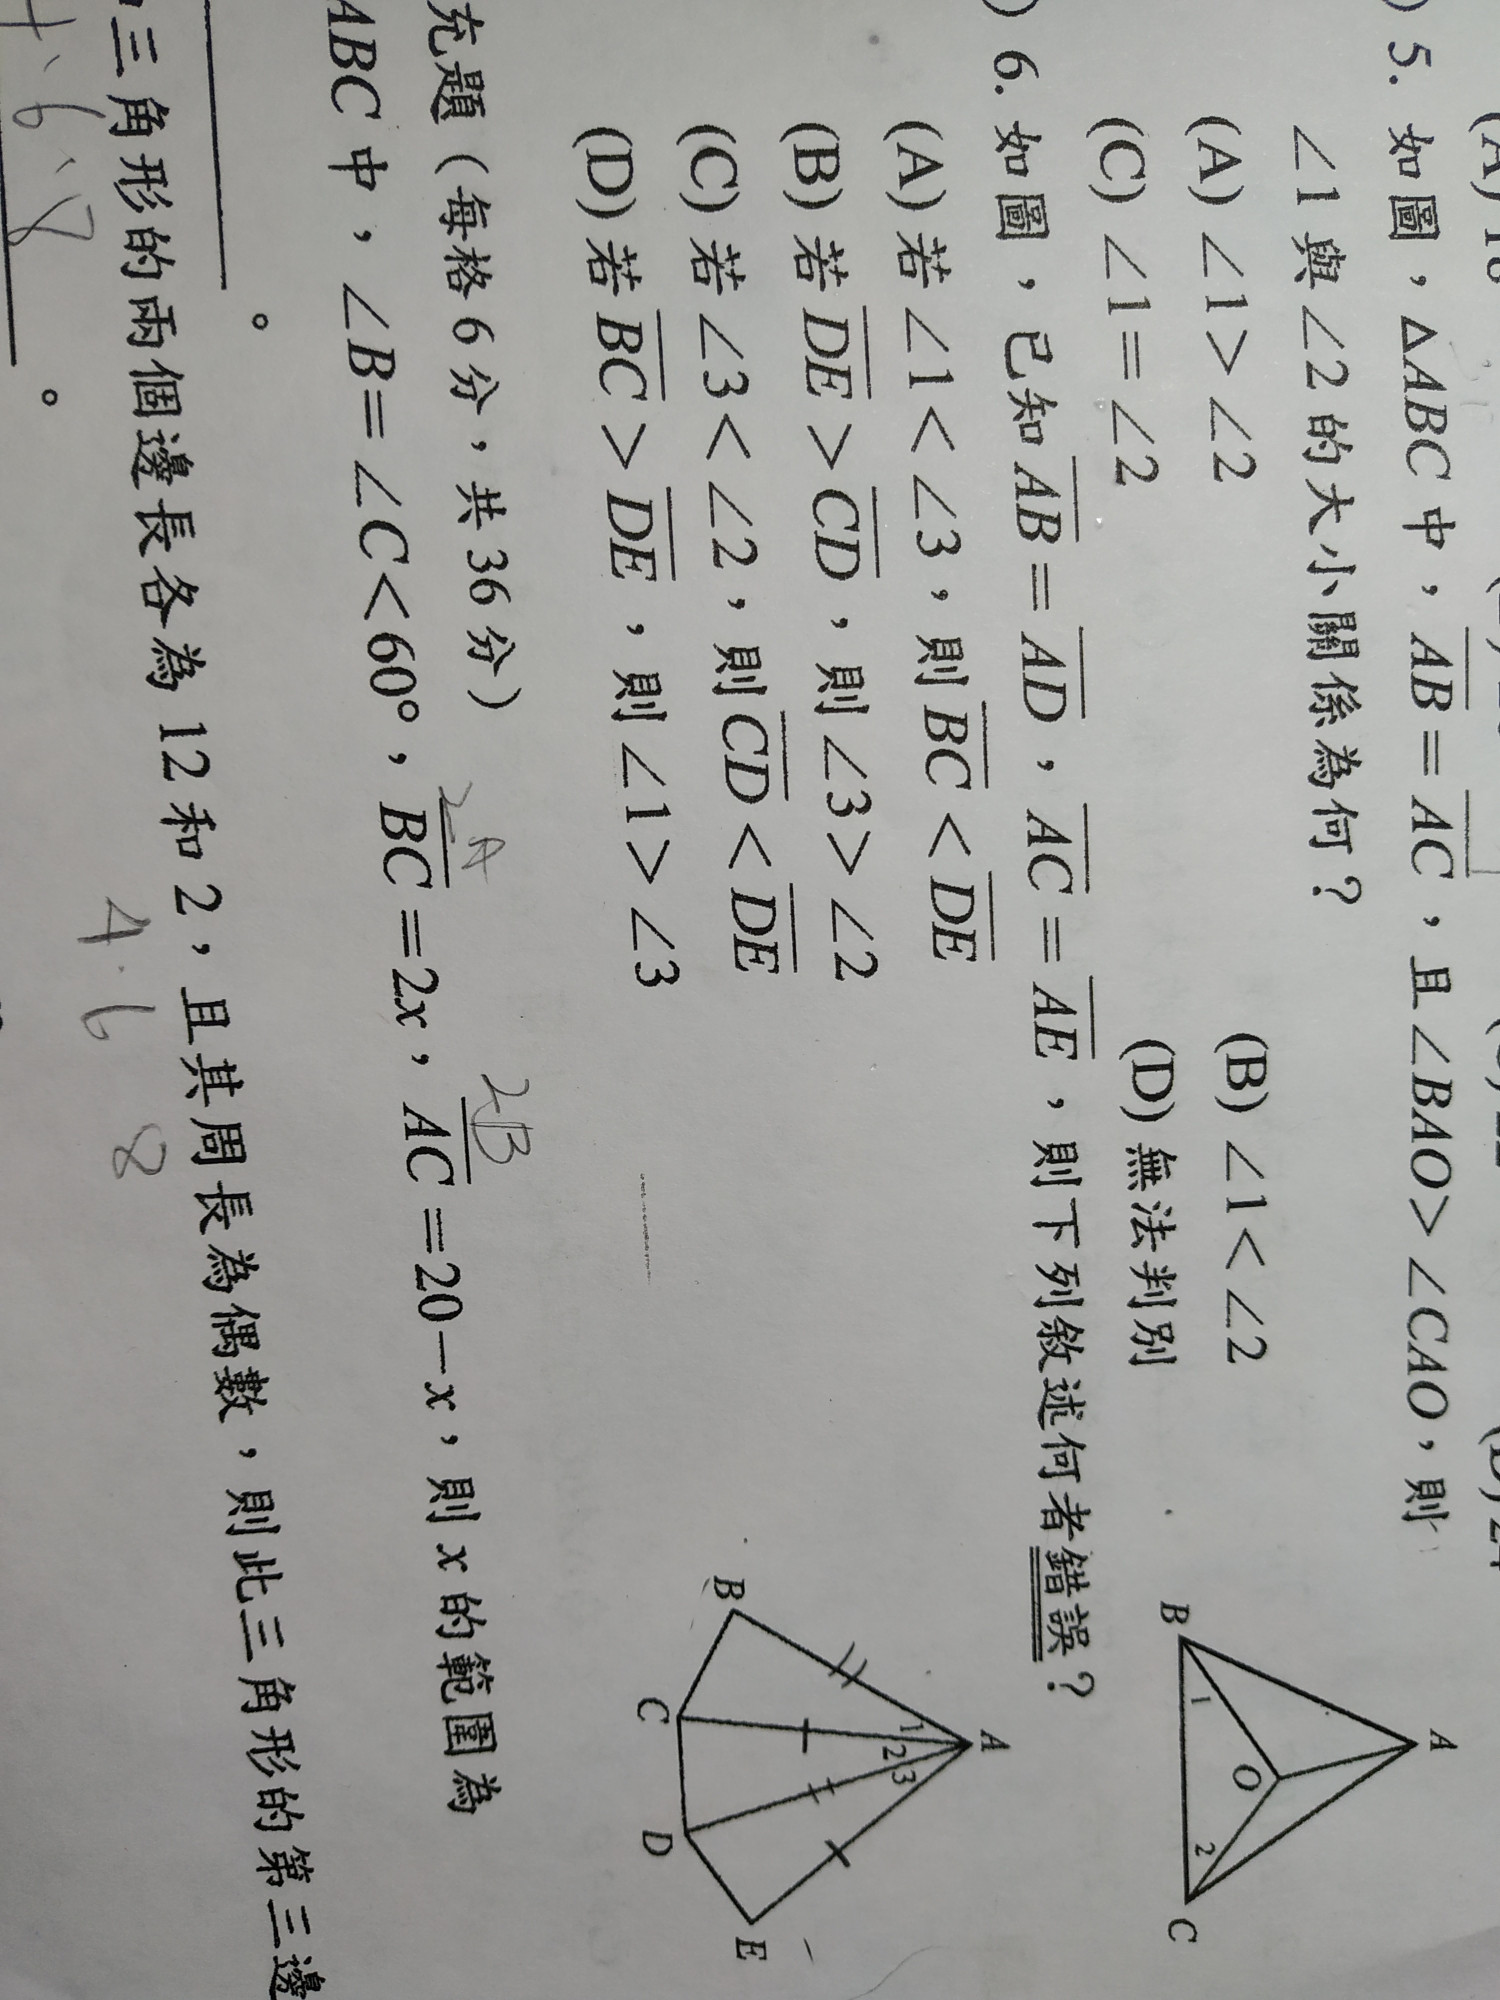 ) 5. 如圖，△ABC 中，AB＝AC，且∠BAO＞∠CAO，則
∠1 與∠2 的大小關係為何？
(A) ∠1＞∠2
(B) ∠1＜∠2
(C) ∠1＝∠2
(D) 無法判別
A
B
C
O
1
2
) 6. 如圖，已知 AB＝AD，AC＝AE，則下列敘述何者錯誤？
(A) 若∠1＜∠3，則 BC＜DE
(B) 若 DE＞CD，則∠3＞∠2
(C) 若∠3＜∠2，則 CD＜DE
(D) 若 BC＞DE，則∠1＞∠3
A
1
2
3
B
C
D
E
充題（每格 6 分，共 36 分）
ABC 中，∠B＝∠C＜60°，BC＝2x，AC＝20－x，則 x 的範圍為
。
三角形的兩個邊長各為 12 和 2，且其周長為偶數，則此三角形的第三邊
4 6 8
、6、8
。